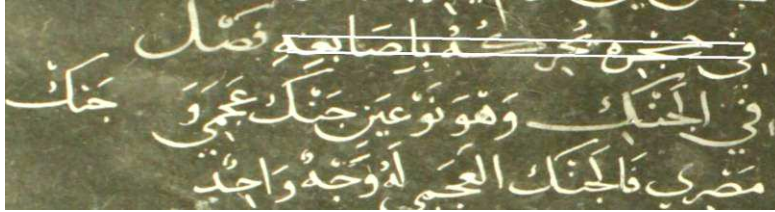 في حجره يُحَرِّكُهُ بِاِصَابِعِهِ فَصْل
في الجَنْك وَهْوَ نَوْعَيْن جَنْك عَجَمي وَ جَنْك
مَصْري فَالجَنْك العَجَمي لَهُ وَجْهٌ وَاحِد